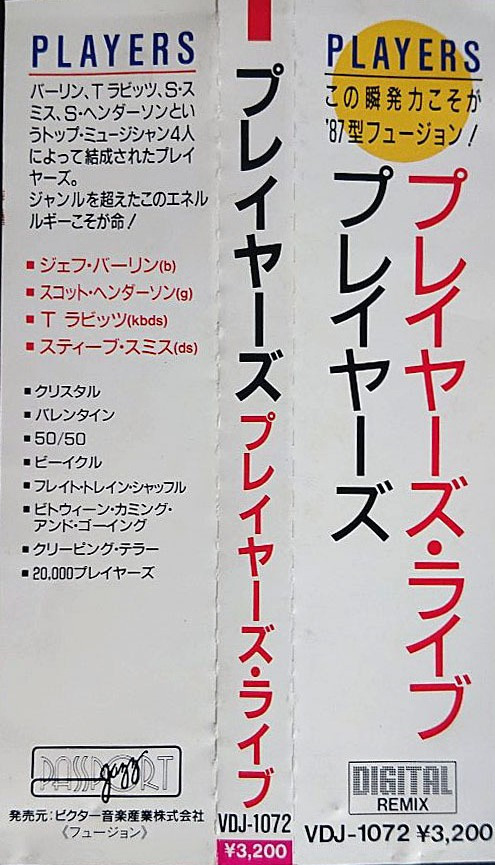 PLAYERS
バーリン、Tラビッツ、S・ス
ミス、S・ヘンダーソンとい
うトップ・ミュージシャン4人
によって結成されたプレイ
ヤーズ。
ジャンルを超えたこのエネル
ルギーこそが命!
■ ジェフ・バーリン(b)
■ スコット・ヘンダーソン(g)
■ T ラビッツ(kbds)
■ スティーブ・スミス(ds)
■ クリスタル
■ バレンタイン
■ 50/50
■ ビーイクル
■ フレイト・トレイン・シャッフル
■ ビトウィーン・カミング・
アンド・ゴーイング
■ クリーピング・テラー
■ 20,000プレイヤーズ
PASSPORT
jazz
発売元:ビクター音楽産業株式会社
《フュージョン》
プレイヤーズ プレイヤーズ・ライブ
VDJ-1072
¥3,200
PLAYERS
この瞬発力こそが
'87型フュージョン!
プレイヤーズ・ライブ
プレイヤーズ
DIGITAL
REMIX
VDJ-1072 ¥3,200